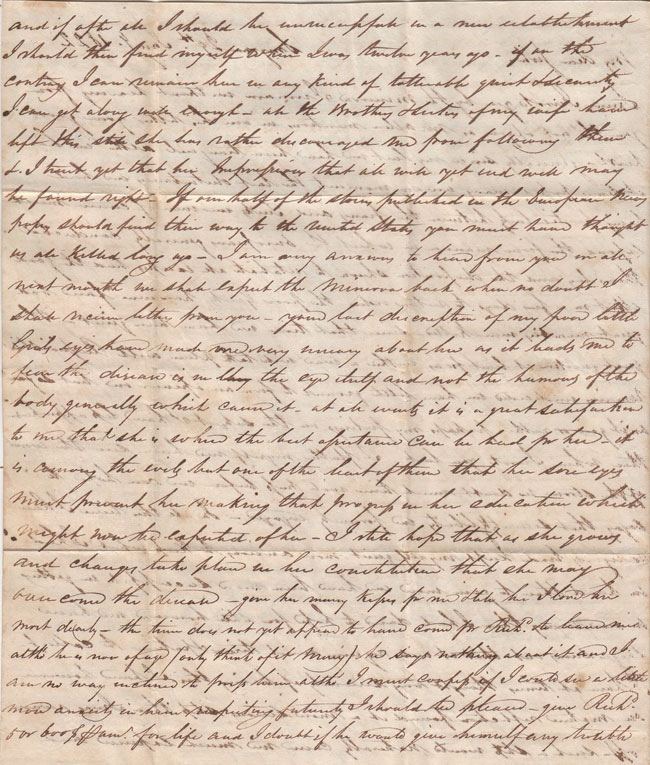 and if after all I should be unsuccessful in a new establishment
I should then find myself where I was twelve years ago - if on the
contrary I can remain here in any kind of tollerable quiet & security
I can get along well enough - all the Brothers & Sisters of my wife have
left this she has rather discouraged me from following them
& I trust yet that her impressions that all will yet end well may
be found right - If one half of the stories published in the European News
papers should find their way to the United States you must have thought
us all killed long ago - I am very anxious to hear from you
next month we shall expect the Minerva back when no doubt I
shall receive letters from you - your last description of my poor little
Girls eyes have made me very uneasy about her as it leads me to
fear the disease is in the eye itself and not the humours of the
body generally which cause it - at all events it is a great satisfaction
to me that she is where the best assistance can be had for her - it
is among the evils but one of the least of them that her sore eyes
must prevent her making that progress in her education which
might now be expected of her - I still hope that as she grows
and changes take place in her constitution that she may
over come the disease - give her many kisses for me & tell her I love her
most dearly - the time does not yet appear to have come for Richd. to leave me
altho he is now of age (only think of it Mary) he says nothing about it and I
am no way inclined to press him altho I must confess if I could see a little
more anxiety in him respecting futurity I should be pleased - give Richd.
5 or 600 for life and I doubt if he would give himself any trouble